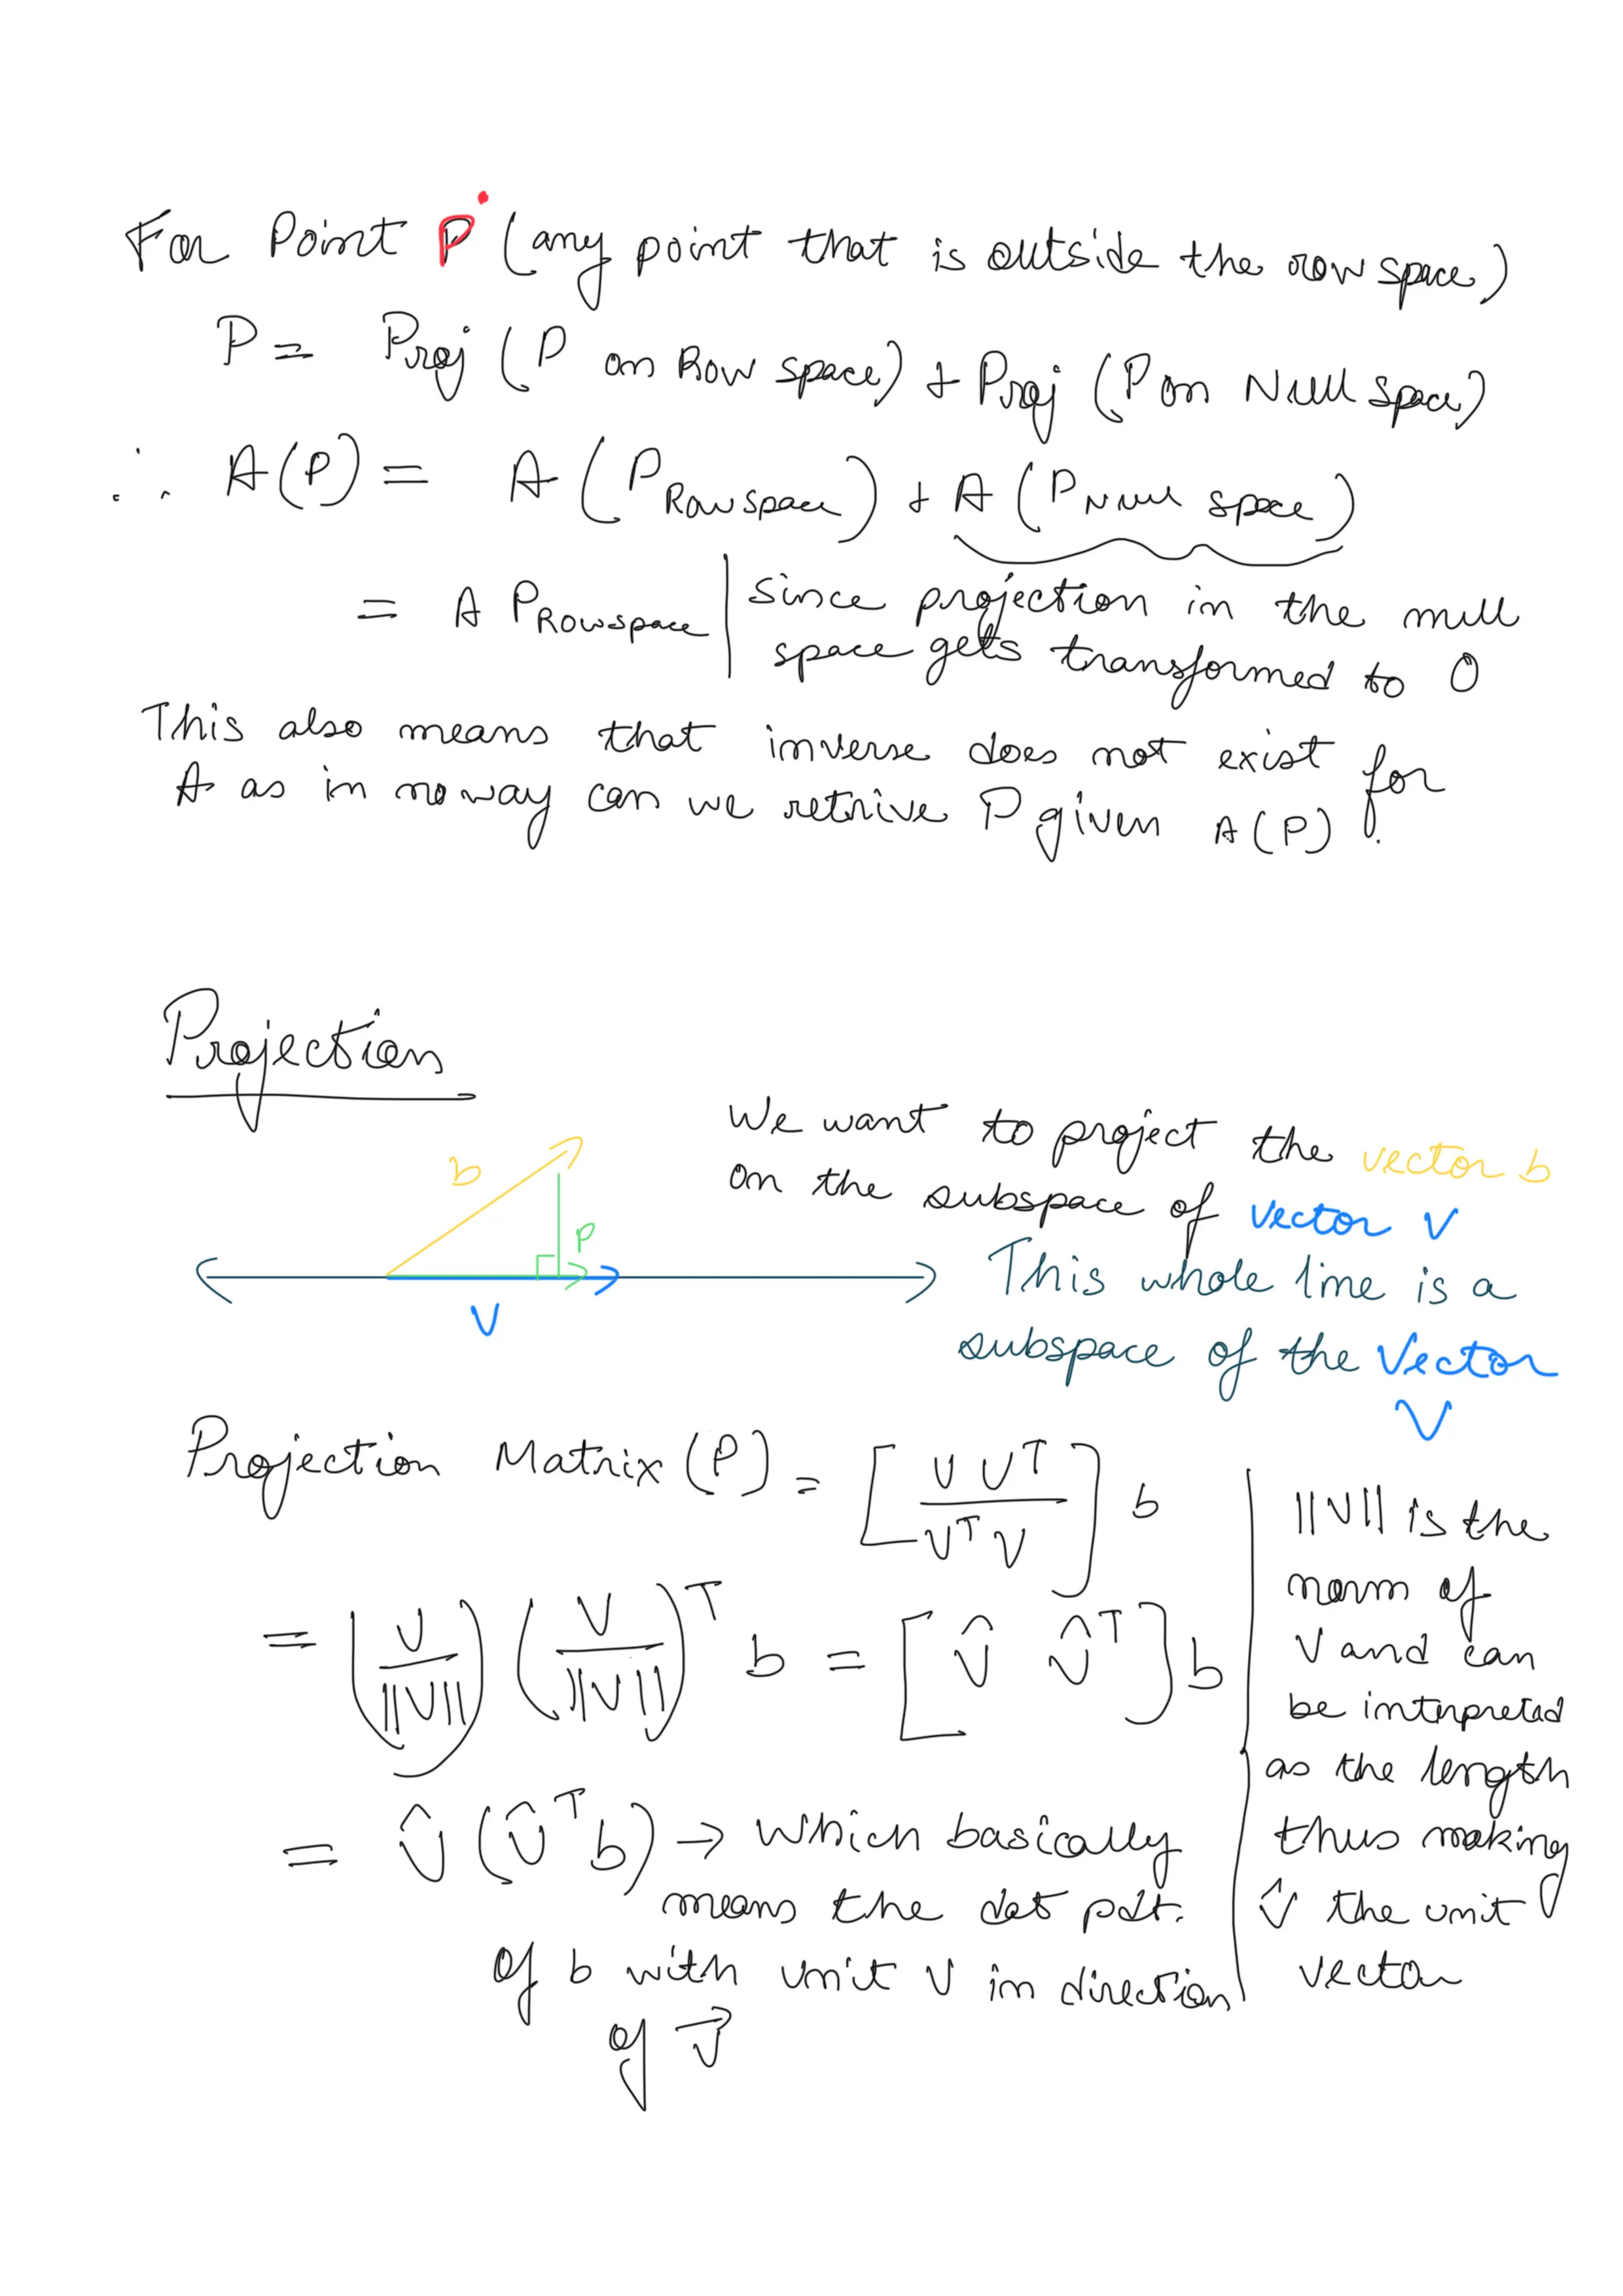 For Point P (any point that is outside the row space)
P = Proj (P on Row space) + Proj (P on Null space)
∴ A(P) = A (P Rowspace) + A (P Null space)
= A P Rowspace | since projection in the null
space gets transformed to 0
This also means that inverse does not exist for
A as in no way can we retrive P given A(P).
Projection
We want to project the vector b
on the subspace of vector v
b
P
V
This whole line is a
subspace of the Vector
V
Projection Matrix (P) = [V V^T / V^T V] b
= (V / ||V||) (V / ||V||)^T b = [V̂ V̂^T] b
= V̂ (V̂^T b) → which basically
means the dot pdt.
of b with unit v in direction
of v⃗
||V|| is the
norm of
V and can
be interpreted
as the length
thus making
v̂ the unit
vector